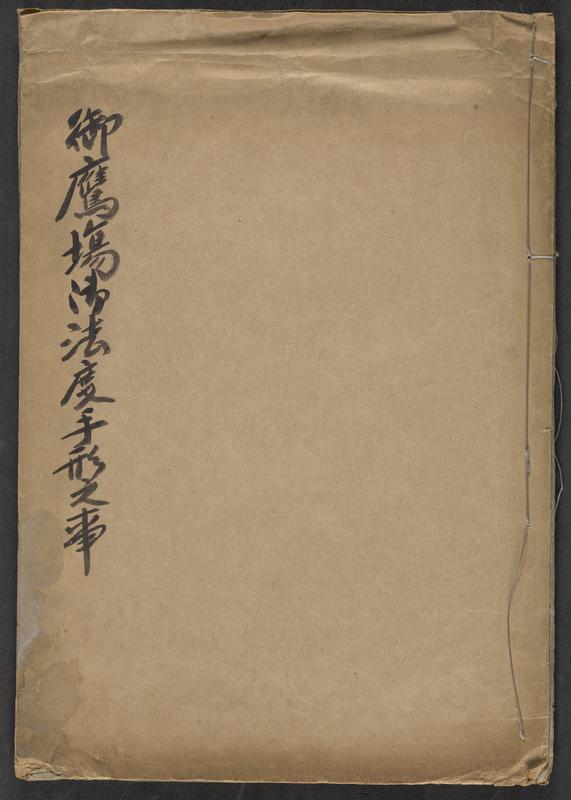 御鷹場御法度手形之事